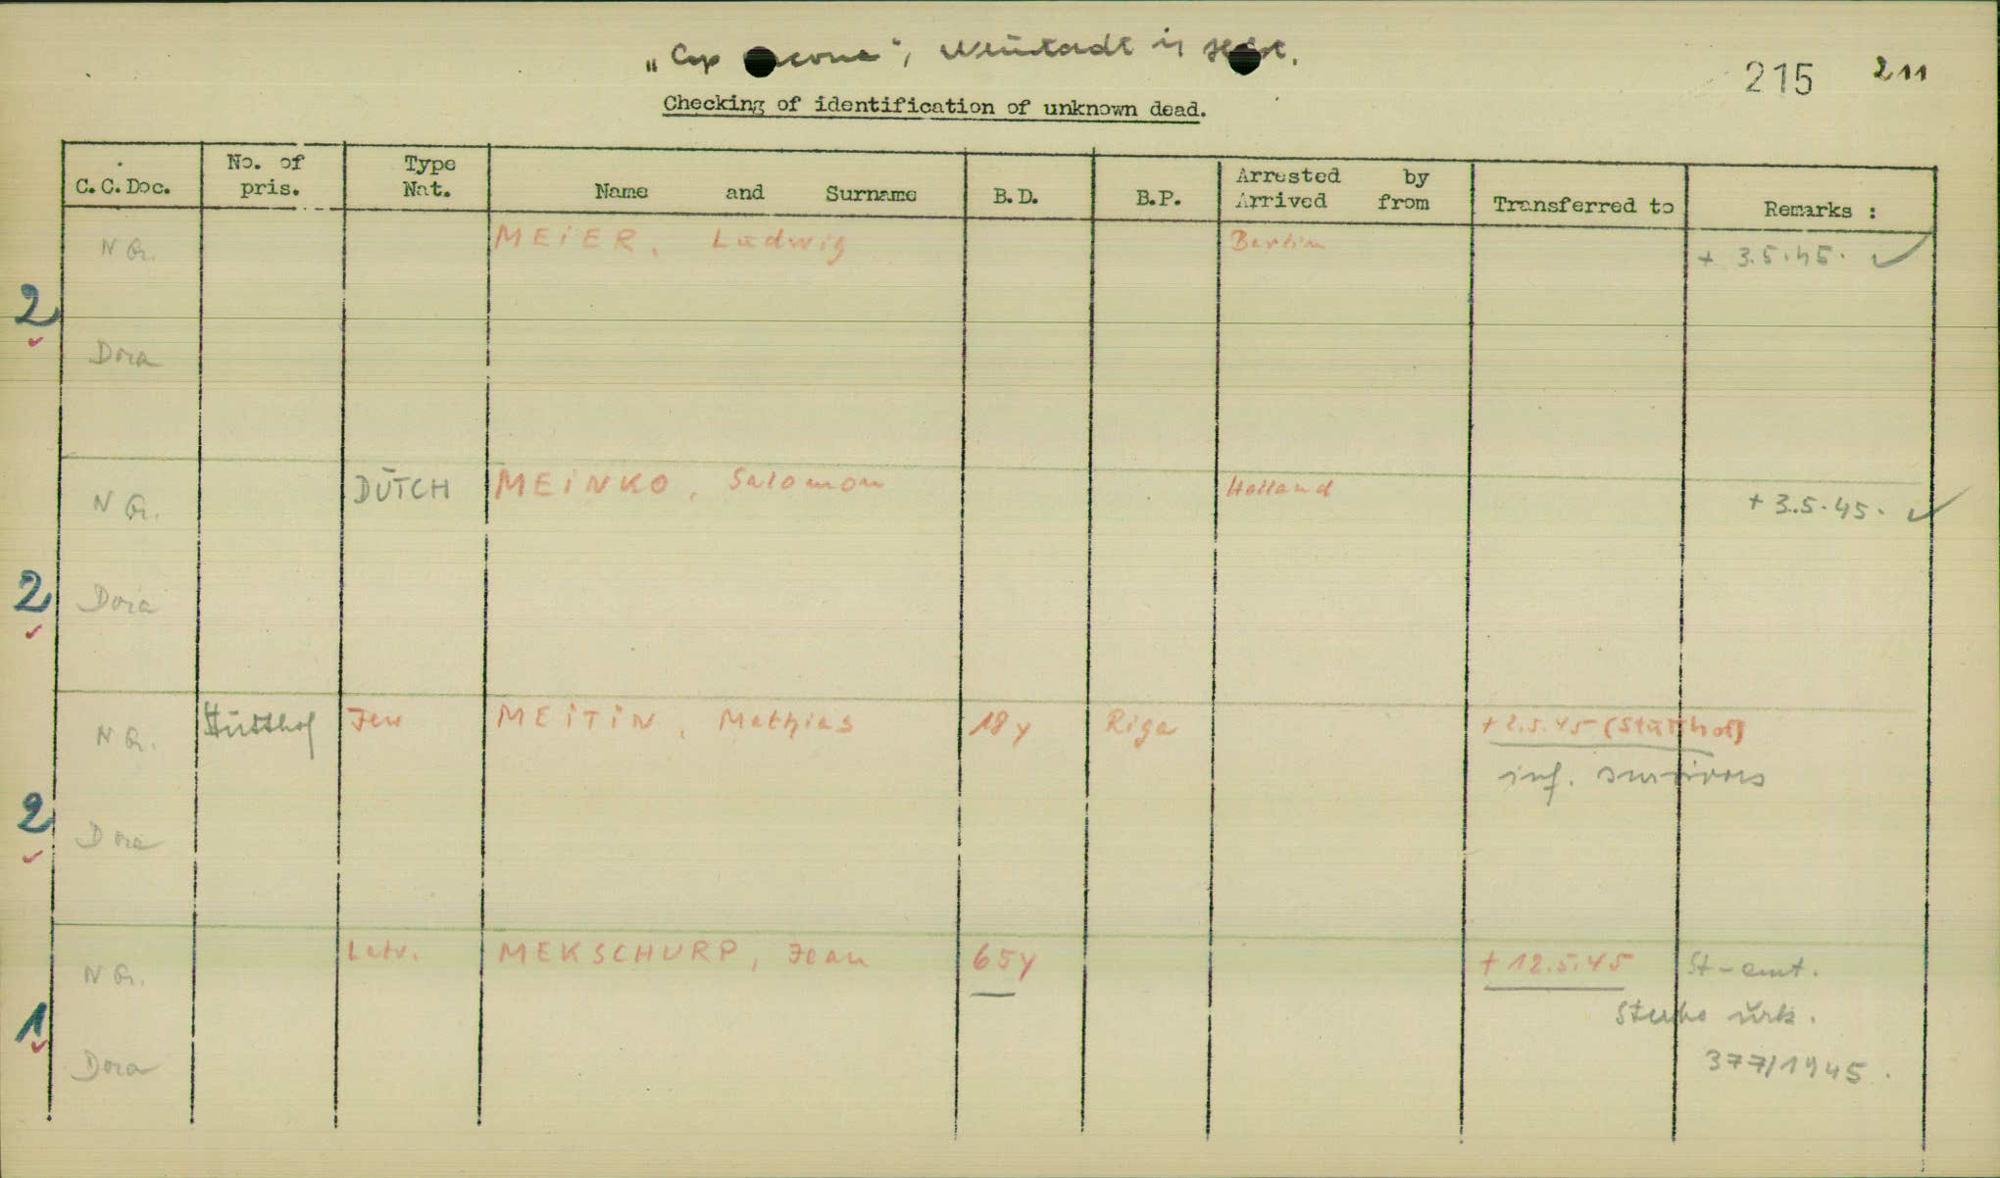 „Cap Arcona", Neustadt in Holst.
215 211
Checking of identification of unknown dead.
C.C.Doc. No. of pris. Type Nat. Name and Surname B.D. B.P. Arrested by Arrived from Transferred to Remarks :
N G. MEiER, Ludwig Berlin + 3.5.45. ✓
2 ✓
Dora
N G. DUTCH MEiNKO, Salomon Holland + 3.5.45. ✓
2 ✓
Dora
N G. Stutthof Jew MEiTiN, Mathias 18y Riga + 2.5.45 (Stutthof)
inf. survivors
2 ✓
Dora
N G. Latv. MEKSCHURP, Jean 65y + 12.5.45 St-amt.
1 ✓
Sterbe urk.
Dora 377/1945.